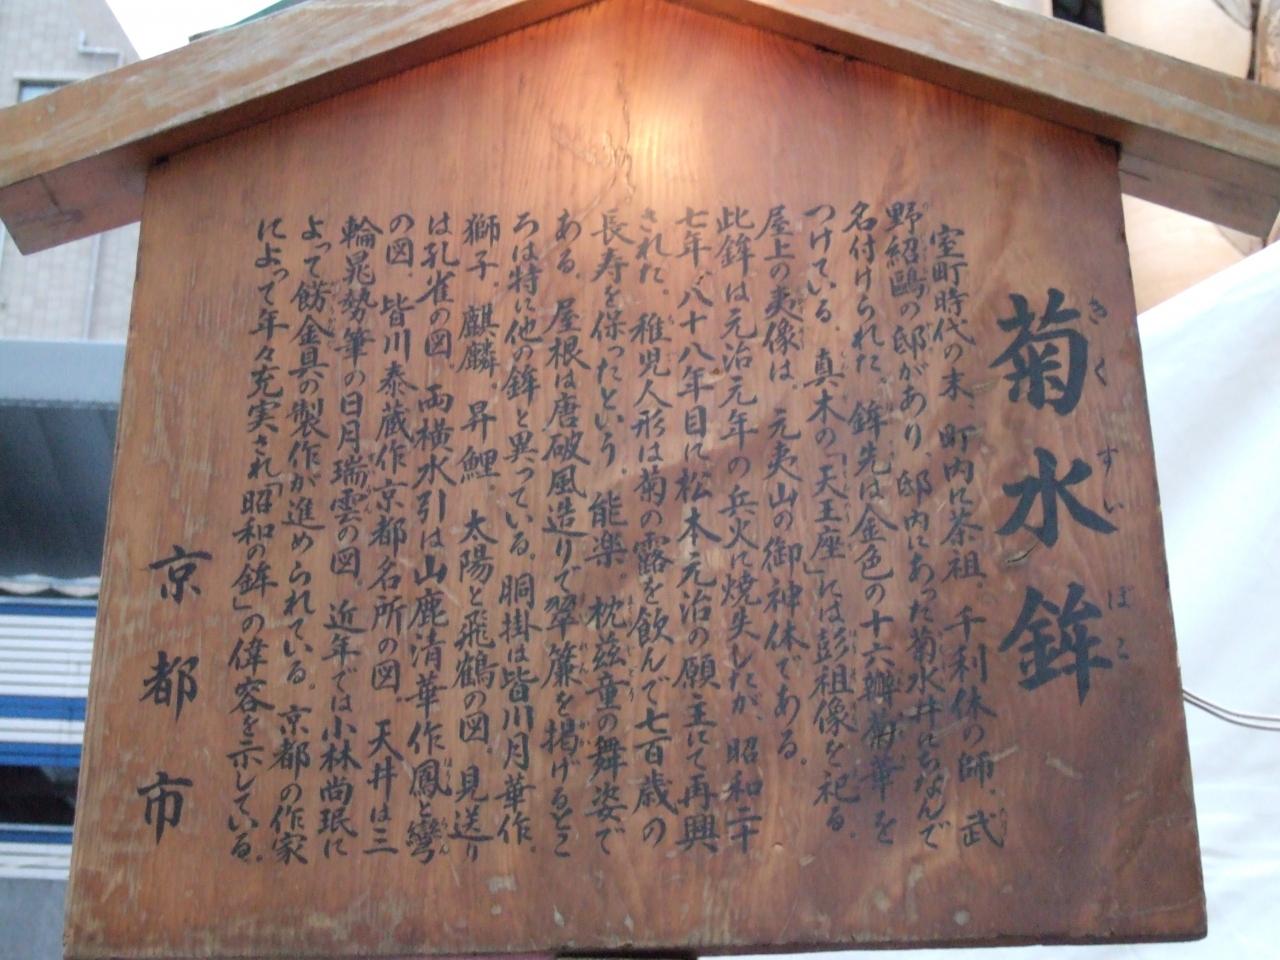 菊水鉾
きくすいぼこ
室町時代の末、町内に茶祖、千利休の師、武
野紹鷗の邸があり、邸内にあった菊水井にちなんで
名付けられた。鉾先は金色の十六瓣菊華を
つけている。真木の「天王座」には彭祖像を祀る。
屋上の夷像は、元夷山の御神体である。
此鉾は元治元年の兵火に焼失したが、昭和二十
七年、八十八年目に松本元治の願主にて再興
された。稚児人形は菊の露を飲んで七百歳の
長寿を保ったという、能楽、枕慈童の舞姿で
ある。屋根は唐破風造りで翠簾を掲げるとこ
ろは特に他の鉾と異っている。胴掛は皆川月華作。
獅子、麒麟、昇鯉、太陽と飛鶴の図、見送り
は孔雀の図、両横水引は山鹿清華作鳳と鸞
の図、皆川泰蔵作京都名所の図、天井は三
輪晁勢筆の日月瑞雲の図、近年では小林尚珉に
よって餝金具の製作が進められている。京都の作家
によって年々充実され「昭和の鉾」の偉容を示している。
京都市